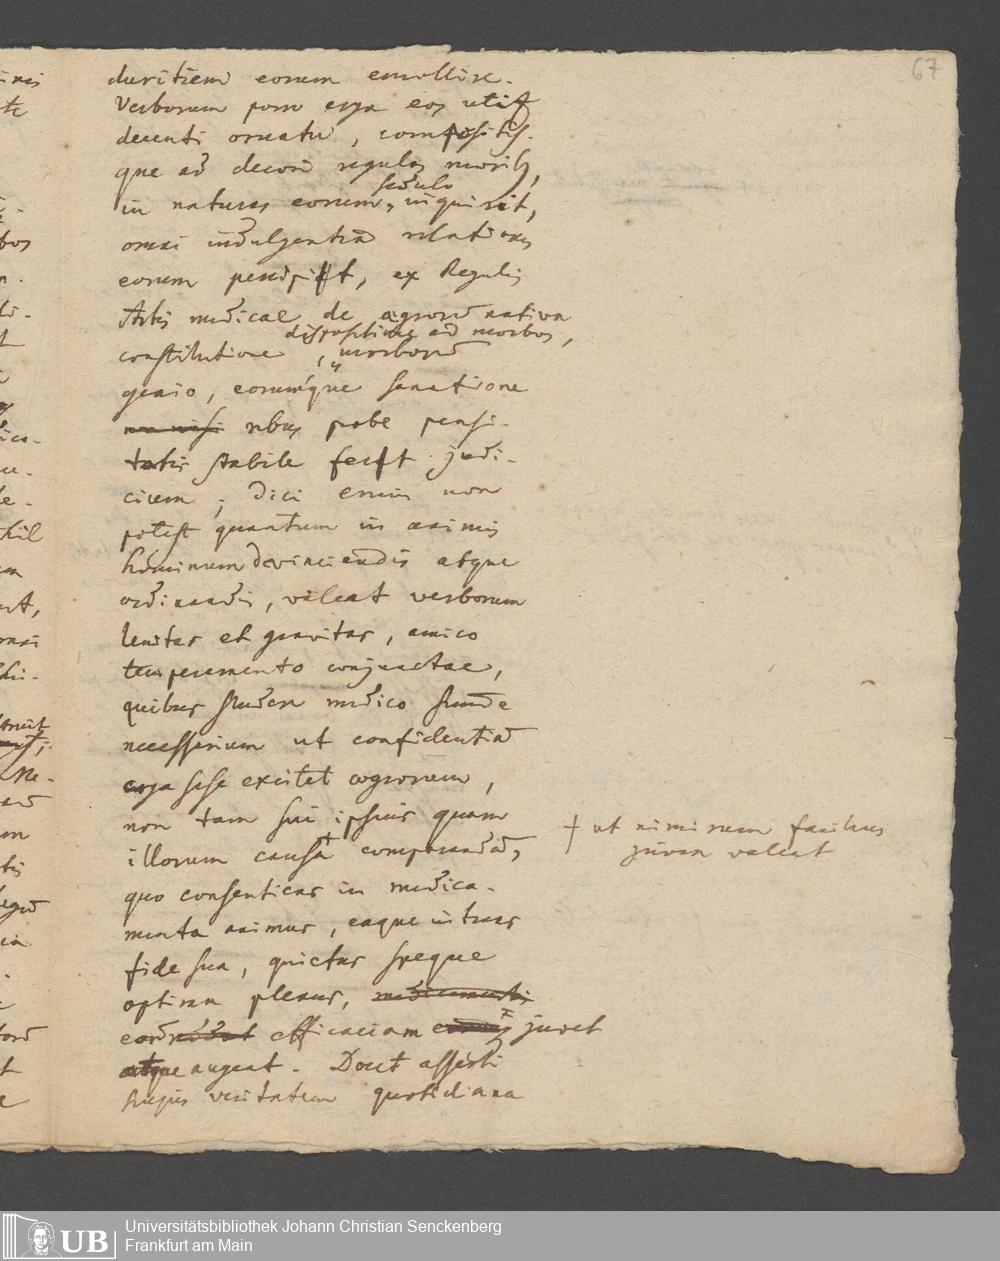 67
duritiem eorum emollire.
Verborum porro erga eos utit
decenti ornatu, compositis-
que ad decori regulas morib,
sedulo
in naturas eorum, inquirit,
omni indulgentia relationes
eorum percipit, ex Regulis
Artis medicae de aegrorum nativa
dispositione ad morbos,
constitutione, morborum
genio, eorumque sanatione
non nisi rebus probe pensi-
tatis stabile fert judi-
cium; dici enim non
potest quantum in animis
hominum devinciendis atque
ordinandis, valeat verborum
lenitas et gravitas, amico
temperamento conjunctae,
quibus studere medico summe
necessarium ut confidentiam
erga sese excitet aegrorum,
non tam sui ipsius quam
illorum causa † comparandam,
† ut nimirum facilius
juvare valeat
quo consenticas in medica-
menta animus, eaque intuas
fide sua, quietus speque
optima plenus, medicamenti
eorum efficaciam juvet
atque augeat. Docet asserti
hujus veritatem quotidiana
Universitätsbibliothek Johann Christian Senckenberg
Frankfurt am Main
UB